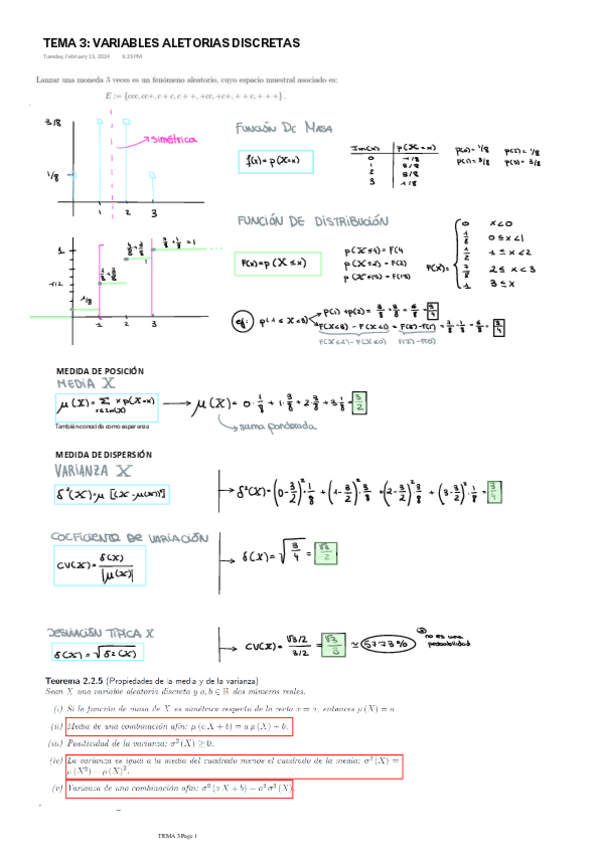 TEMA 3: VARIABLES ALETORIAS DISCRETAS
Tuesday, February 13, 2024 3:23 PM
Lanzar una moneda 3 veces es un fenómeno aleatorio, cuyo espacio muestral asociado es:
E := {ccc, cc+, c+c, c++, +cc, +c+, ++c, +++}.
3/8
→ simétrica
1/8
1 2 3
FUNCIÓN DE MASA
f(x) = p(X=x)
Im(X) p(X=x)
0 1/8
1 3/8
2 3/8
3 1/8
p(0)=1/8
p(1)=3/8
FUNCIÓN DE DISTRIBUCIÓN
F(x) = p(X≤x)
F(X) =
0 x<0
1/8 0≤x<1
1/2 1≤x<2
7/8 2≤x<3
1 3≤x
1
1/2
1/8
1 2 3
ej:
p(1)+p(2) = 3/8 + 3/8 = 6/8 = 3/4
MEDIDA DE POSICIÓN
MEDIA X
μ(X) = Σ x p(X=x)
x∈Im(X)
→ μ(X) = 0·1/8 + 1·3/8 + 2·3/8 + 3·1/8 = 3/2
También conocida como esperanza
→ suma ponderada
MEDIDA DE DISPERSIÓN
VARIANZA X
δ²(X) = μ[(X-μ(X))²]
→ δ²(X) = (0-3/2)²·1/8 + (1-3/2)²·3/8 + (2-3/2)²·3/8 + (3-3/2)²·1/8 = 3/4
COEFICIENTE DE VARIACIÓN
CV(X) = δ(X)/|μ(X)|
→ δ(X) = √3/4 = √3/2
DESVIACIÓN TÍPICA X
δ(X) = √δ²(X)
→ CV(X) = √3/2 / 3/2 = √3/3 ≃ 57.73%
no es una
probabilidad
Teorema 2.2.5 (Propiedades de la media y de la varianza)
Sean X una variable aleatoria discreta y a, b ∈ ℝ dos números reales.
(i) Si la función de masa de X es simétrica respecto de la recta x = a, entonces μ(X) = a.
(ii) Media de una combinación afín: μ(a X + b) = a μ(X) + b.
(iii) Positividad de la varianza: σ²(X) ≥ 0.
(iv) La varianza es igual a la media del cuadrado menos el cuadrado de la media: σ²(X) =
μ(X²) − μ(X)².
(v) Varianza de una combinación afín: σ²(a X + b) = a² σ²(X).
TEMA 3 Page 1